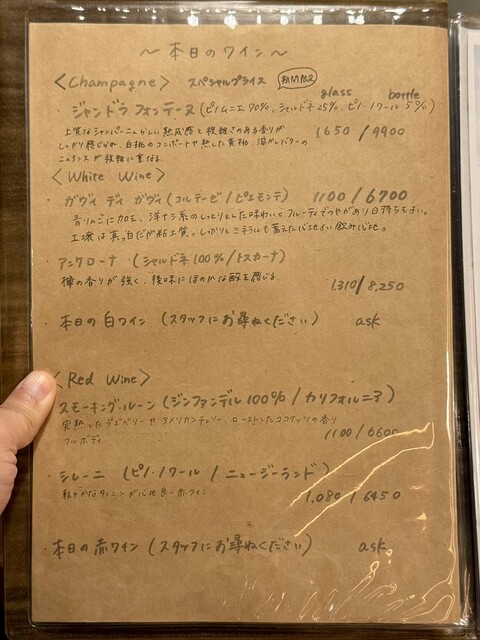 ～本日のワイン～
<Champagne> スペシャルプライス
glass bottle
ジャンドラフォンテーヌ (ピノムニエ70%, シャルドネ25%, ピノ・ノワール5%)
上質なシャンパーニュらしい熟成感と複雑さのある香りが 1650 / 9900
しっかり感じられ、白桃のコンポートや熟した黄桃、溶かしバターの
ニュアンスが複雑に重なる。
<White Wine>
・ガヴィ ディ ガヴィ (コルテーゼ / ピエモンテ) 1100 / 6700
青りんごに加え、洋ナシ系のしっとりとした味わい。フルーティでつやがあり日持ちもよい。
土壌は真っ白だが粘土質。しっかりとミネラルも蓄えた心地よい飲み心地。
・アンクローナ (シャルドネ100% / トスカーナ)
樽の香りが強く、後味にほのかな酸を感じる。 1,310 / 8,250
・本日の白ワイン (スタッフにお尋ねください) ask
<Red Wine>
スモーキング・ルーン (ジンファンデル100% / カリフォルニア)
完熟したラズベリーやアメリカンチェリー、ローストしたココナッツの香り
フルボディ 1100 / 6600
・シレーニ (ピノ・ノワール / ニュージーランド)
軽やかなタンニンが心地良い赤ワイン 1,080 / 6450
・本日の赤ワイン (スタッフにお尋ねください) ask